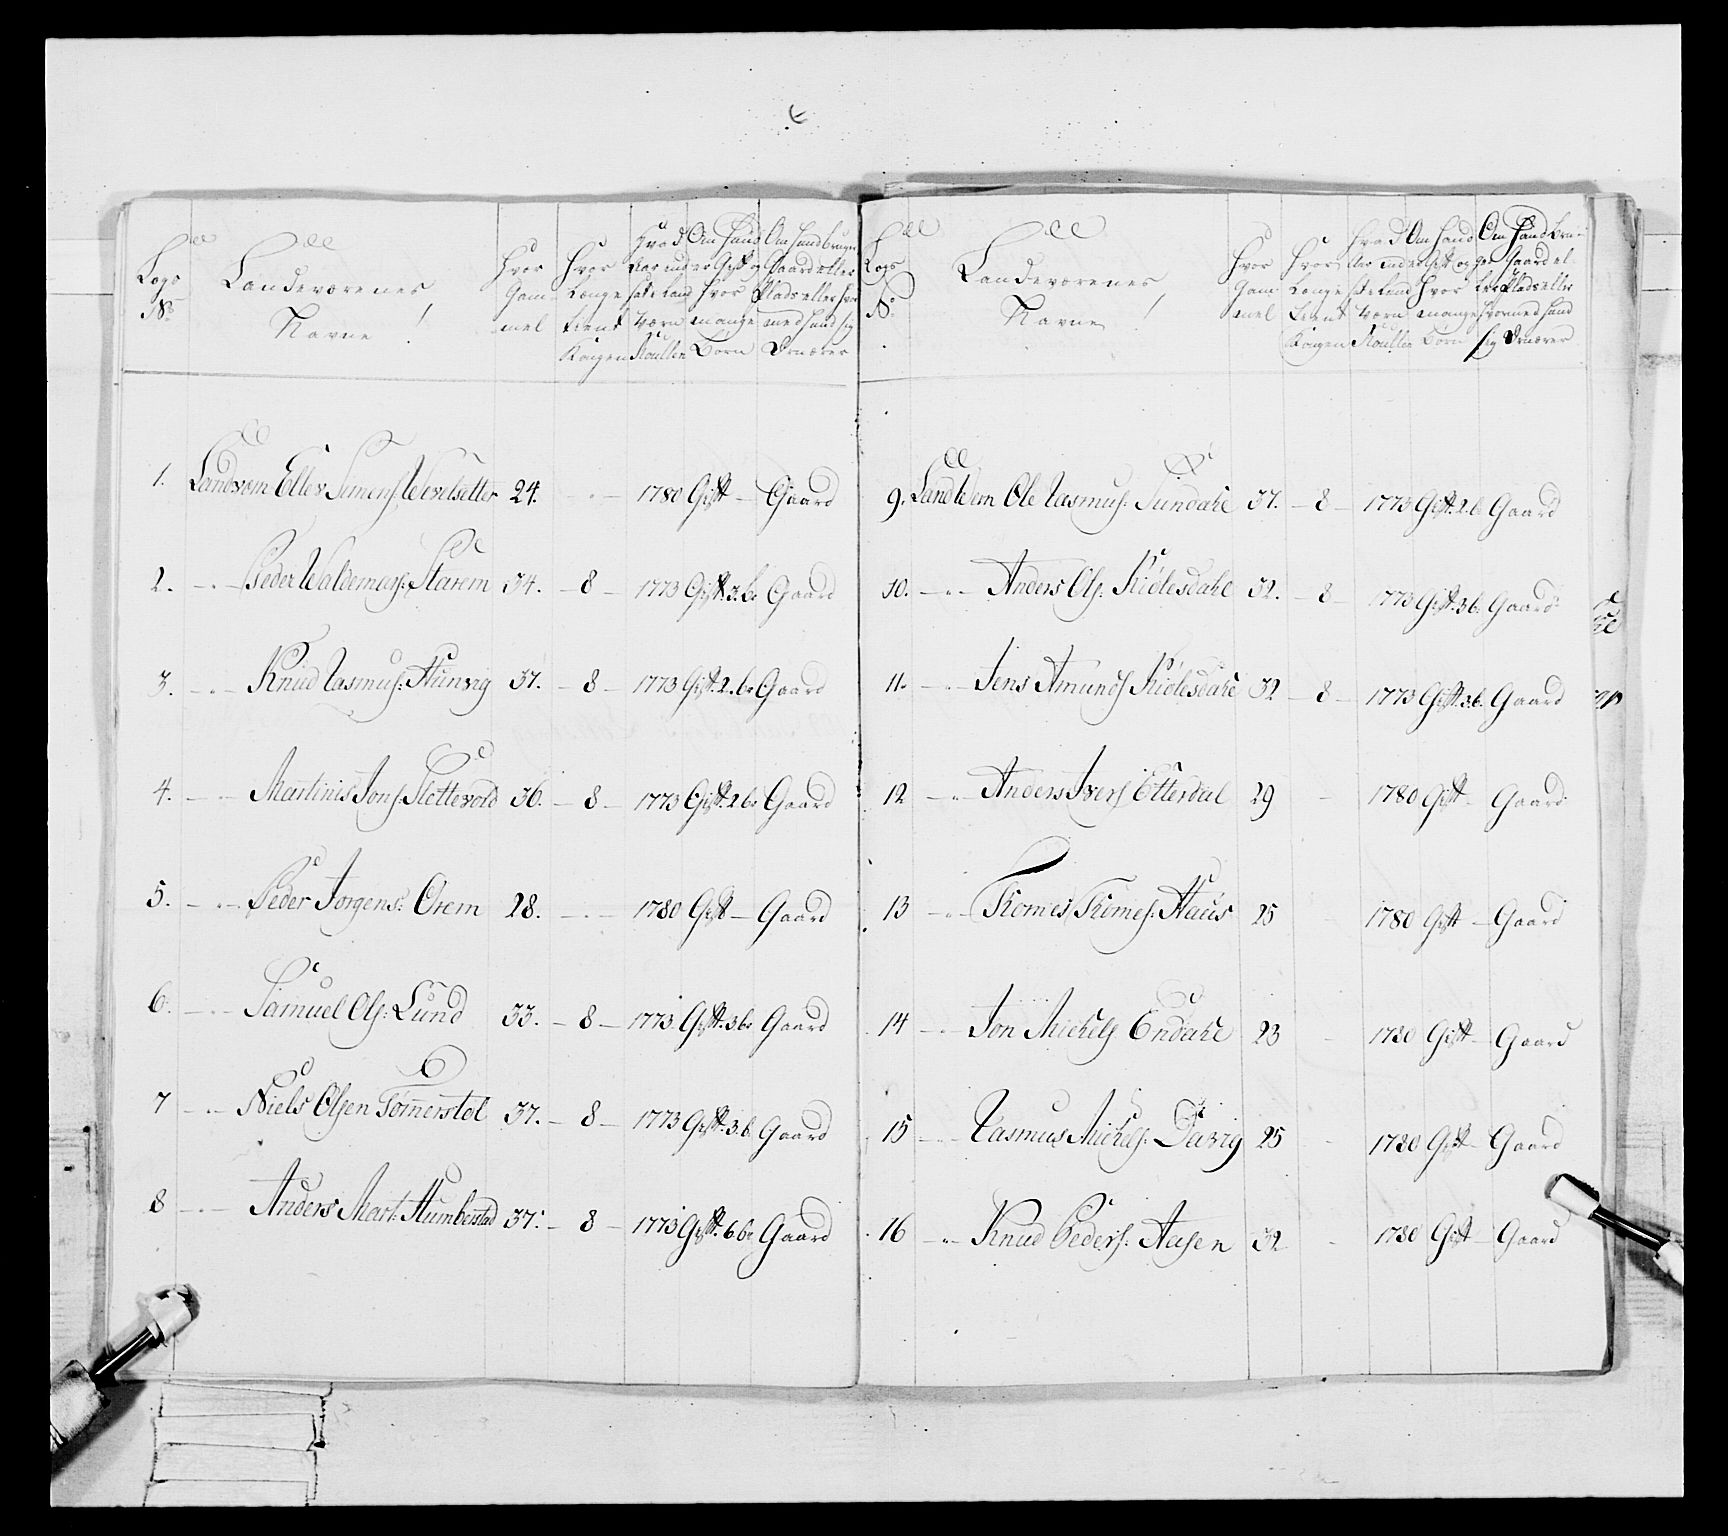 Logs No
Landeværenes Navne!
Hvor Gammel
Hvor Længe tient Kongen
Hvad Aar ind sadt i Land Værn Roullen
Om Hand er Gift og hvor mange Børn
Om Hand bruger Gaard eller Plads eller hvor med hand sig Ernærer
1. Landværn Elles Simens: Werelsetter 24. — 1780 Gift — Gaard
2. — " — Peder Waldemars: Starem 34. — 8 — 1773 Gift. 3. b. Gaard
3. — " — Knud Rasmus: Hunvig 37. — 8 — 1773 Gift. 2. b. Gaard
4. — " — Martinis Jons: Slettevold 36. — 8 — 1773 Gift. 2 b. Gaard
5. — " — Peder Jørgens: Orem 28. — " — 1780 Gift — Gaard
6. — " — Samuel Ols: Lund 33. — 8 — 1773. Gift. 3 b. Gaard
7 — " — Niels Olsen Tommerstøl 37. — 8 — 1773 Gift. 3. b. Gaard
8 — " — Anders Mart: Humberstad 37. — 8 — 1773 Gift. 6 b. Gaard
Logs No
Landeværenes Navne!
Hvor Gammel
Hvor Længe tient Kongen
Hvad Aar ind sadt i Land Værn Roullen
Om Hand er Gift og hvor mange Børn
Om Hand bruger Gaard eller Plads eller hvormed hand sig Ernærer
9. Landværn Ole Rasmus: Sundahl 37. — 8 — 1773 Gift. 2. b. Gaard
10. — " — Anders Ols: Kiølesdahl 32. — 8 — 1773 Gift. 3 b. Gaard
11. — " — Jens Amunds Kiølesdahl 32 — 8 — 1773 Gift. 3 b. Gaard
12 — " — Anders Ivers Etterdal 29 — 1780 Gift — Gaard
13 — " — Thomes Thomes: Haus 25 1780 Gift — Gaard
14 — " — Jon Michels Endahl 23 — 1780 Gift — Gaard
15 — " — Rasmus Michels: Davig 25 — 1780 Gift — Gaard
16 — " — Knud Peders: Aasen 32 — 1780 Gift — Gaard